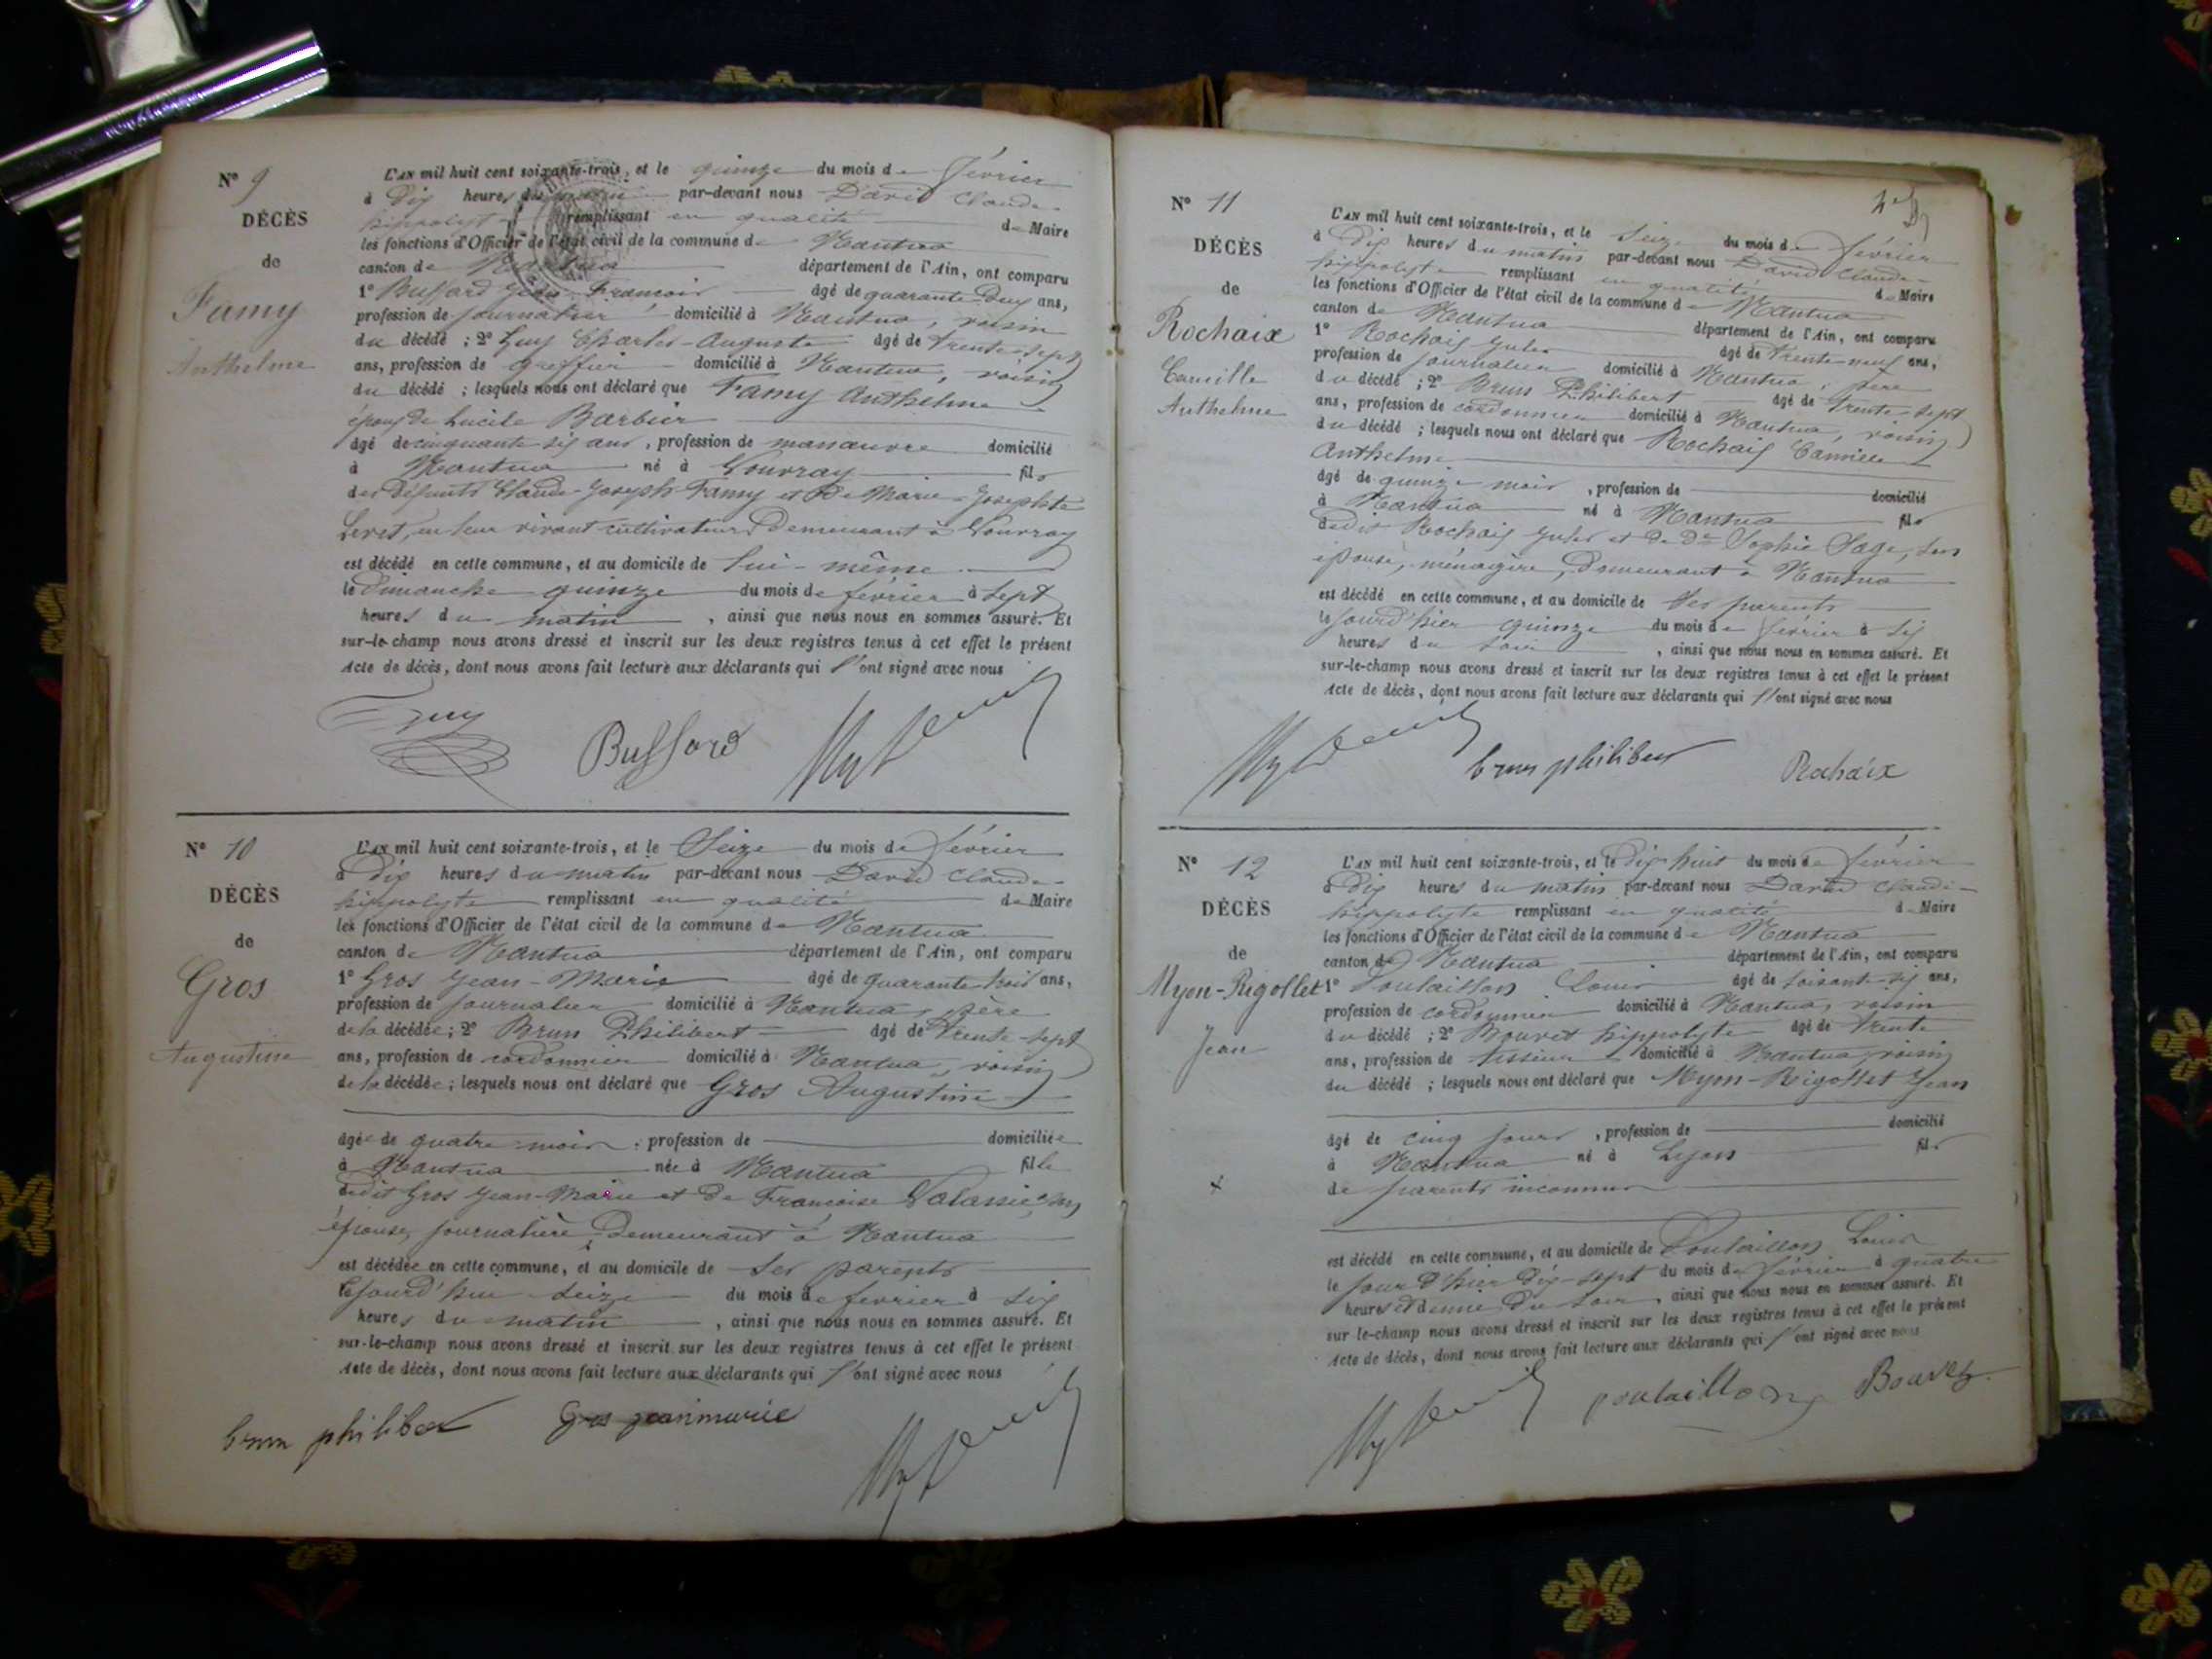 N° 9
DÉCÈS
de
Famy
Anthelme
L'AN mil huit cent soixante-trois, et le quinze du mois de février
à dix heures du matin par-devant nous David Claude
hippolyte remplissant en qualité de Maire
les fonctions d'Officier de l'état civil de la commune de Nantua
canton de Nantua département de l'Ain, ont comparu
1° Buffard Jean François âgé de quarante deux ans,
profession de journalier domicilié à Nantua, voisin
du décédé ; 2° Guy Charles Auguste âgé de trente-sept
ans, profession de greffier domicilié à Nantua, voisin
du décédé ; lesquels nous ont déclaré que Famy Anthelme
époux de Lucile Barbier
âgé de cinquante six ans, profession de manœuvre domicilié
à Nantua né à Vouvray fils
des défunts Claude-Joseph Famy et de Marie-Josephte
Levet, en leur vivant cultivateurs demeurant à Vouvray
est décédé en cette commune, et au domicile de lui-même
le Dimanche quinze du mois de février à sept
heures du matin, ainsi que nous nous en sommes assuré. Et
sur-le-champ nous avons dressé et inscrit sur les deux registres tenus à cet effet le présent
Acte de décès, dont nous avons fait lecture aux déclarants qui l'ont signé avec nous
Guy Buffard
N° 10
DÉCÈS
de
Gros
Augustine
L'AN mil huit cent soixante-trois, et le Seize du mois de février
à dix heures du matin par-devant nous David Claude
hippolyte remplissant en qualité de Maire
les fonctions d'Officier de l'état civil de la commune de Nantua
canton de Nantua département de l'Ain, ont comparu
1° Gros Jean-Marie âgé de quarante trois ans,
profession de journalier domicilié à Nantua, père
de la décédée ; 2° Brun Philibert âgé de trente-sept
ans, profession de cordonnier domicilié à Nantua, voisin
de la décédée ; lesquels nous ont déclaré que Gros Augustine
âgée de quatre mois, profession de domiciliée
à Nantua née à Nantua fille
dudit Gros Jean-Marie et de Françoise son
épouse, journalière, demeurant à Nantua
est décédée en cette commune, et au domicile de ses parents
le jourd'hui seize du mois de février à six
heures du matin, ainsi que nous nous en sommes assuré. Et
sur-le-champ nous avons dressé et inscrit sur les deux registres tenus à cet effet le présent
Acte de décès, dont nous avons fait lecture aux déclarants qui l'ont signé avec nous
brun philibert Gros jeanmarie
N° 11
DÉCÈS
de
Rochaix
Camille
Anthelme
L'AN mil huit cent soixante-trois, et le Seize du mois de février
à dix heures du matin par-devant nous David Claude
hippolyte remplissant en qualité de Maire
les fonctions d'Officier de l'état civil de la commune de Nantua
canton de Nantua département de l'Ain, ont comparu
1° Rochaix Jules âgé de trente-neuf ans,
profession de journalier domicilié à Nantua, père
du décédé ; 2° Brun Philibert âgé de trente-sept
ans, profession de cordonnier domicilié à Nantua, voisin
du décédé ; lesquels nous ont déclaré que Rochaix Camille
Anthelme
âgé de quinze mois, profession de domicilié
à Nantua né à Nantua fils
dudit Rochaix Jules et de De Sophie Sage, son
épouse, ménagère, demeurant à Nantua
est décédé en cette commune, et au domicile de ses parents
le jour d'hier quinze du mois de février à six
heures du soir, ainsi que nous nous en sommes assuré. Et
sur-le-champ nous avons dressé et inscrit sur les deux registres tenus à cet effet le présent
Acte de décès, dont nous avons fait lecture aux déclarants qui l'ont signé avec nous
brun philibert Rochaix
N° 12
DÉCÈS
de
Myon-Rigollet
Jean
L'AN mil huit cent soixante-trois, et le Dix huit du mois de février
à dix heures du matin par-devant nous David Claude
hippolyte remplissant en qualité de Maire
les fonctions d'Officier de l'état civil de la commune de Nantua
canton de Nantua département de l'Ain, ont comparu
1° Poulaillon Louis âgé de soixante-six ans,
profession de cordonnier domicilié à Nantua, voisin
du décédé ; 2° Bouvet hippolyte âgé de trente
ans, profession de tisseur domicilié à Nantua, voisin
du décédé ; lesquels nous ont déclaré que Myon-Rigollet Jean
âgé de cinq jours, profession de domicilié
à Nantua né à Lyon fils
de parents inconnus
est décédé en cette commune, et au domicile de Poulaillon Louis
le jour d'hier dix-sept du mois de février à quatre
heures et demie du soir, ainsi que nous nous en sommes assuré. Et
sur le-champ nous avons dressé et inscrit sur les deux registres tenus à cet effet le présent
Acte de décès, dont nous avons fait lecture aux déclarants qui l'ont signé avec nous
poulaillon Bouvet